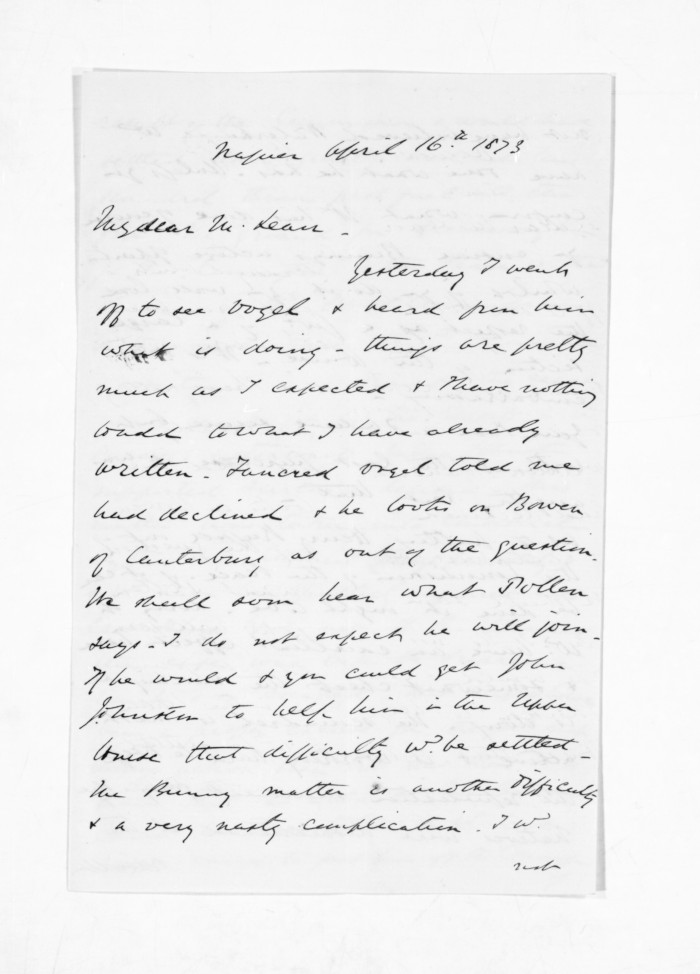 Napier April 16th. 1873
My dear McLean -
Yesterday I went
off to see Vogel & heard from him
what is doing - things are pretty
much as I expected & I have nothing
to add to what I have already
written - Tancred Vogel told me
had declined & he looks on Bowen
of Canterbury as out of the question.
We shall soon hear what Pollen
says - I do not expect he will join -
If he would & you could get John
Johnston to help him in the Upper
house that difficulty wd. be settled -
The Bunny matter is another difficulty
& a very nasty complication. I wd.
not